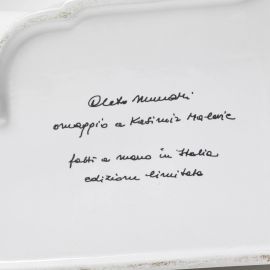 Cleto Munari
omaggio a Kasimir Malevic
fatti a mano in Italia
edizione limitata